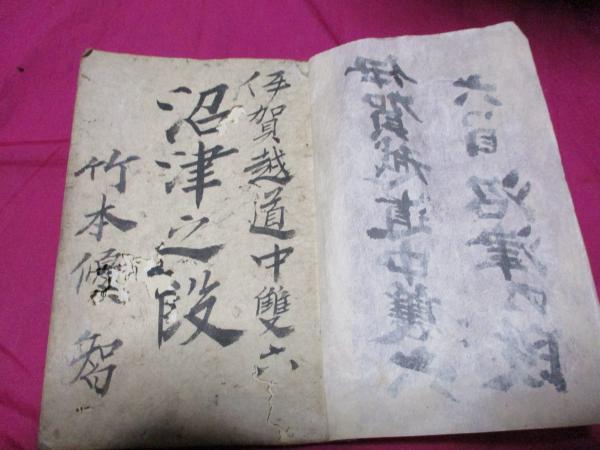 六ツ目 沼津の段
伊賀越道中雙六
伊賀越道中雙六
沼津之段
竹本 智